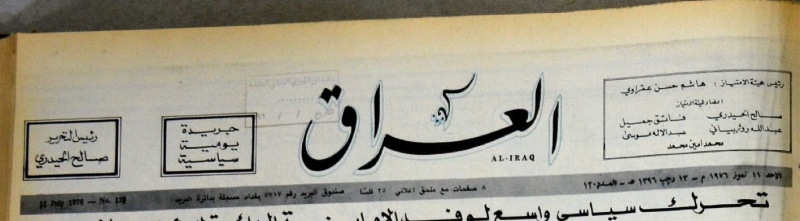 رئيس هيئة الامتياز : هاشم حسن عقراوي
اعضاء هيئة الامتياز
صالح الحيدري فائق جميل
عبدالله عبدالاله
محمد امين محمد
العراق
AL-IRAQ
جريدة
يومية
سياسية
رئيس التحرير
صالح الحيدري
الاحد ١١ تموز ١٩٧٦ م - ١٣ رجب ١٣٩٦ هـ - العدد ١٢٠
٨ صفحات مع ملحق اعلاني ٢٥ فلسا صندوق البريد رقم ٥٧١٧ بغداد مسجلة بدائرة البريد
11 July 1976 — No.
تحرك سياسي واسع لوفد